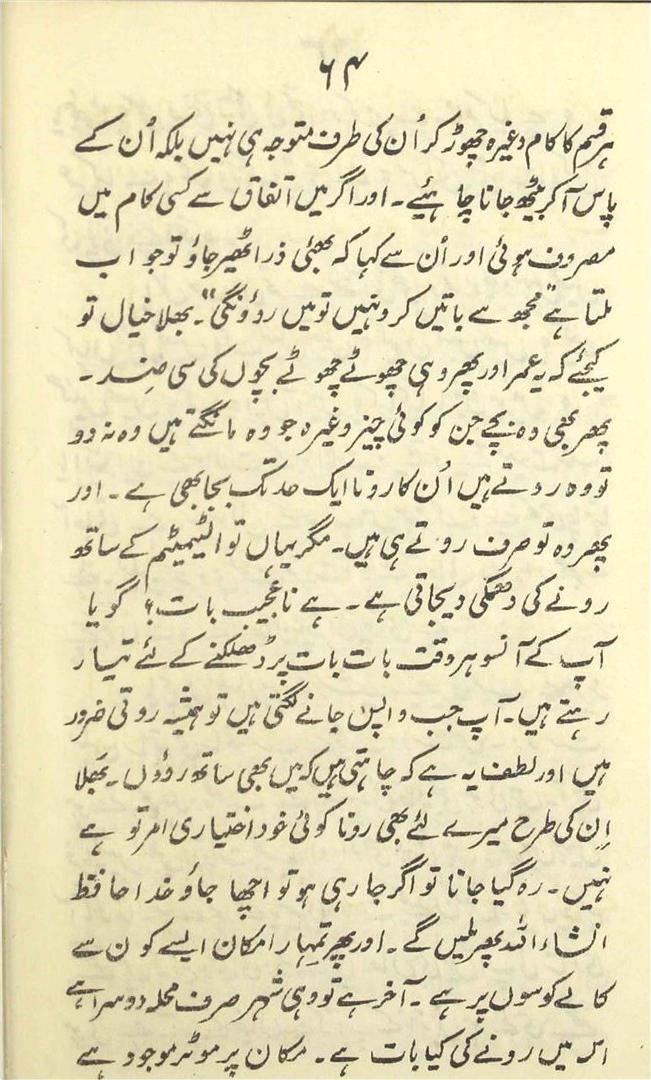 ۶۴
ہر قسم کا کام وغیرہ چھوڑ کر اُن کی طرف متوجہ ہی نہیں بلکہ اُن کے
پاس آکر بیٹھ جانا چاہئیے۔ اور اگر میں اتفاق سے کسی کام میں
مصروف ہوئی اور اُن سے کہا کہ بھئی ذرا ٹھیر جاؤ تو جواب
ملتا ہے "مجھ سے باتیں کرو نہیں تو میں روؤنگی"۔ بھلا خیال تو
کیجئے کہ یہ عمر اور پھر وہی چھوٹے چھوٹے بچوں کی سی ضد۔
پھر بھی وہ بچے جن کو کوئی چیز وغیرہ جو وہ مانگتے ہیں وہ نہ دو
تو وہ روتے ہیں اُن کا رونا ایک حد تک بجا بھی ہے۔ اور
پھر وہ تو صرف روتے ہی ہیں۔ مگر یہاں تو الٹیمیٹم کے ساتھ
رونے کی دھمکی دیجاتی ہے۔ ہے نا عجیب بات؟ گویا
آپ کے آنسو ہر وقت بات بات پر ڈھلکنے کے لئے تیار
رہتے ہیں۔ آپ جب واپس جانے لگتی ہیں تو ہمیشہ روتی ضرور
ہیں اور لطف یہ ہے کہ چاہتی ہیں کہ میں بھی ساتھ روؤں۔ بھلا
اِن کی طرح میرے لئے بھی رونا کوئی خود اختیاری امر تو ہے
نہیں۔ رہ گیا جانا تو اگر جا رہی ہو تو اچھا جاؤ خدا حافظ
انشاء اللہ پھر ملیں گے۔ اور پھر تمہارا مکان ایسے کون سے
کالے کوسوں پر ہے۔ آخر ہے تو وہی شہر صرف محلہ دوسرا ہے
اس میں رونے کی کیا بات ہے۔ مکان پر موٹر موجود ہے